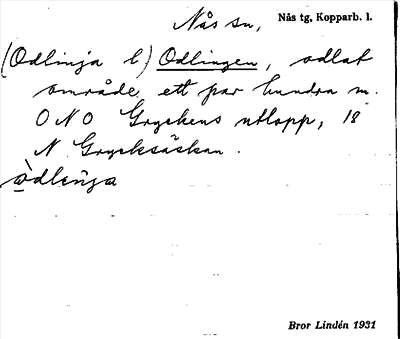 Nås sn, Nås tg, Kopparb. l.
(Odlinja l) Odlingen, odlat
område ett par hundra m.
ONO Gryckens utlopp, 18
N Grycksäskan.
òdleŋa
Bror Lindén 1931